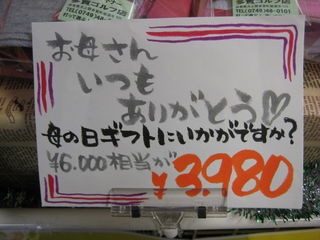 お母さん
いつも
ありがとう♡
母の日ギフトにいかがですか?
¥6.000相当が
¥3,980